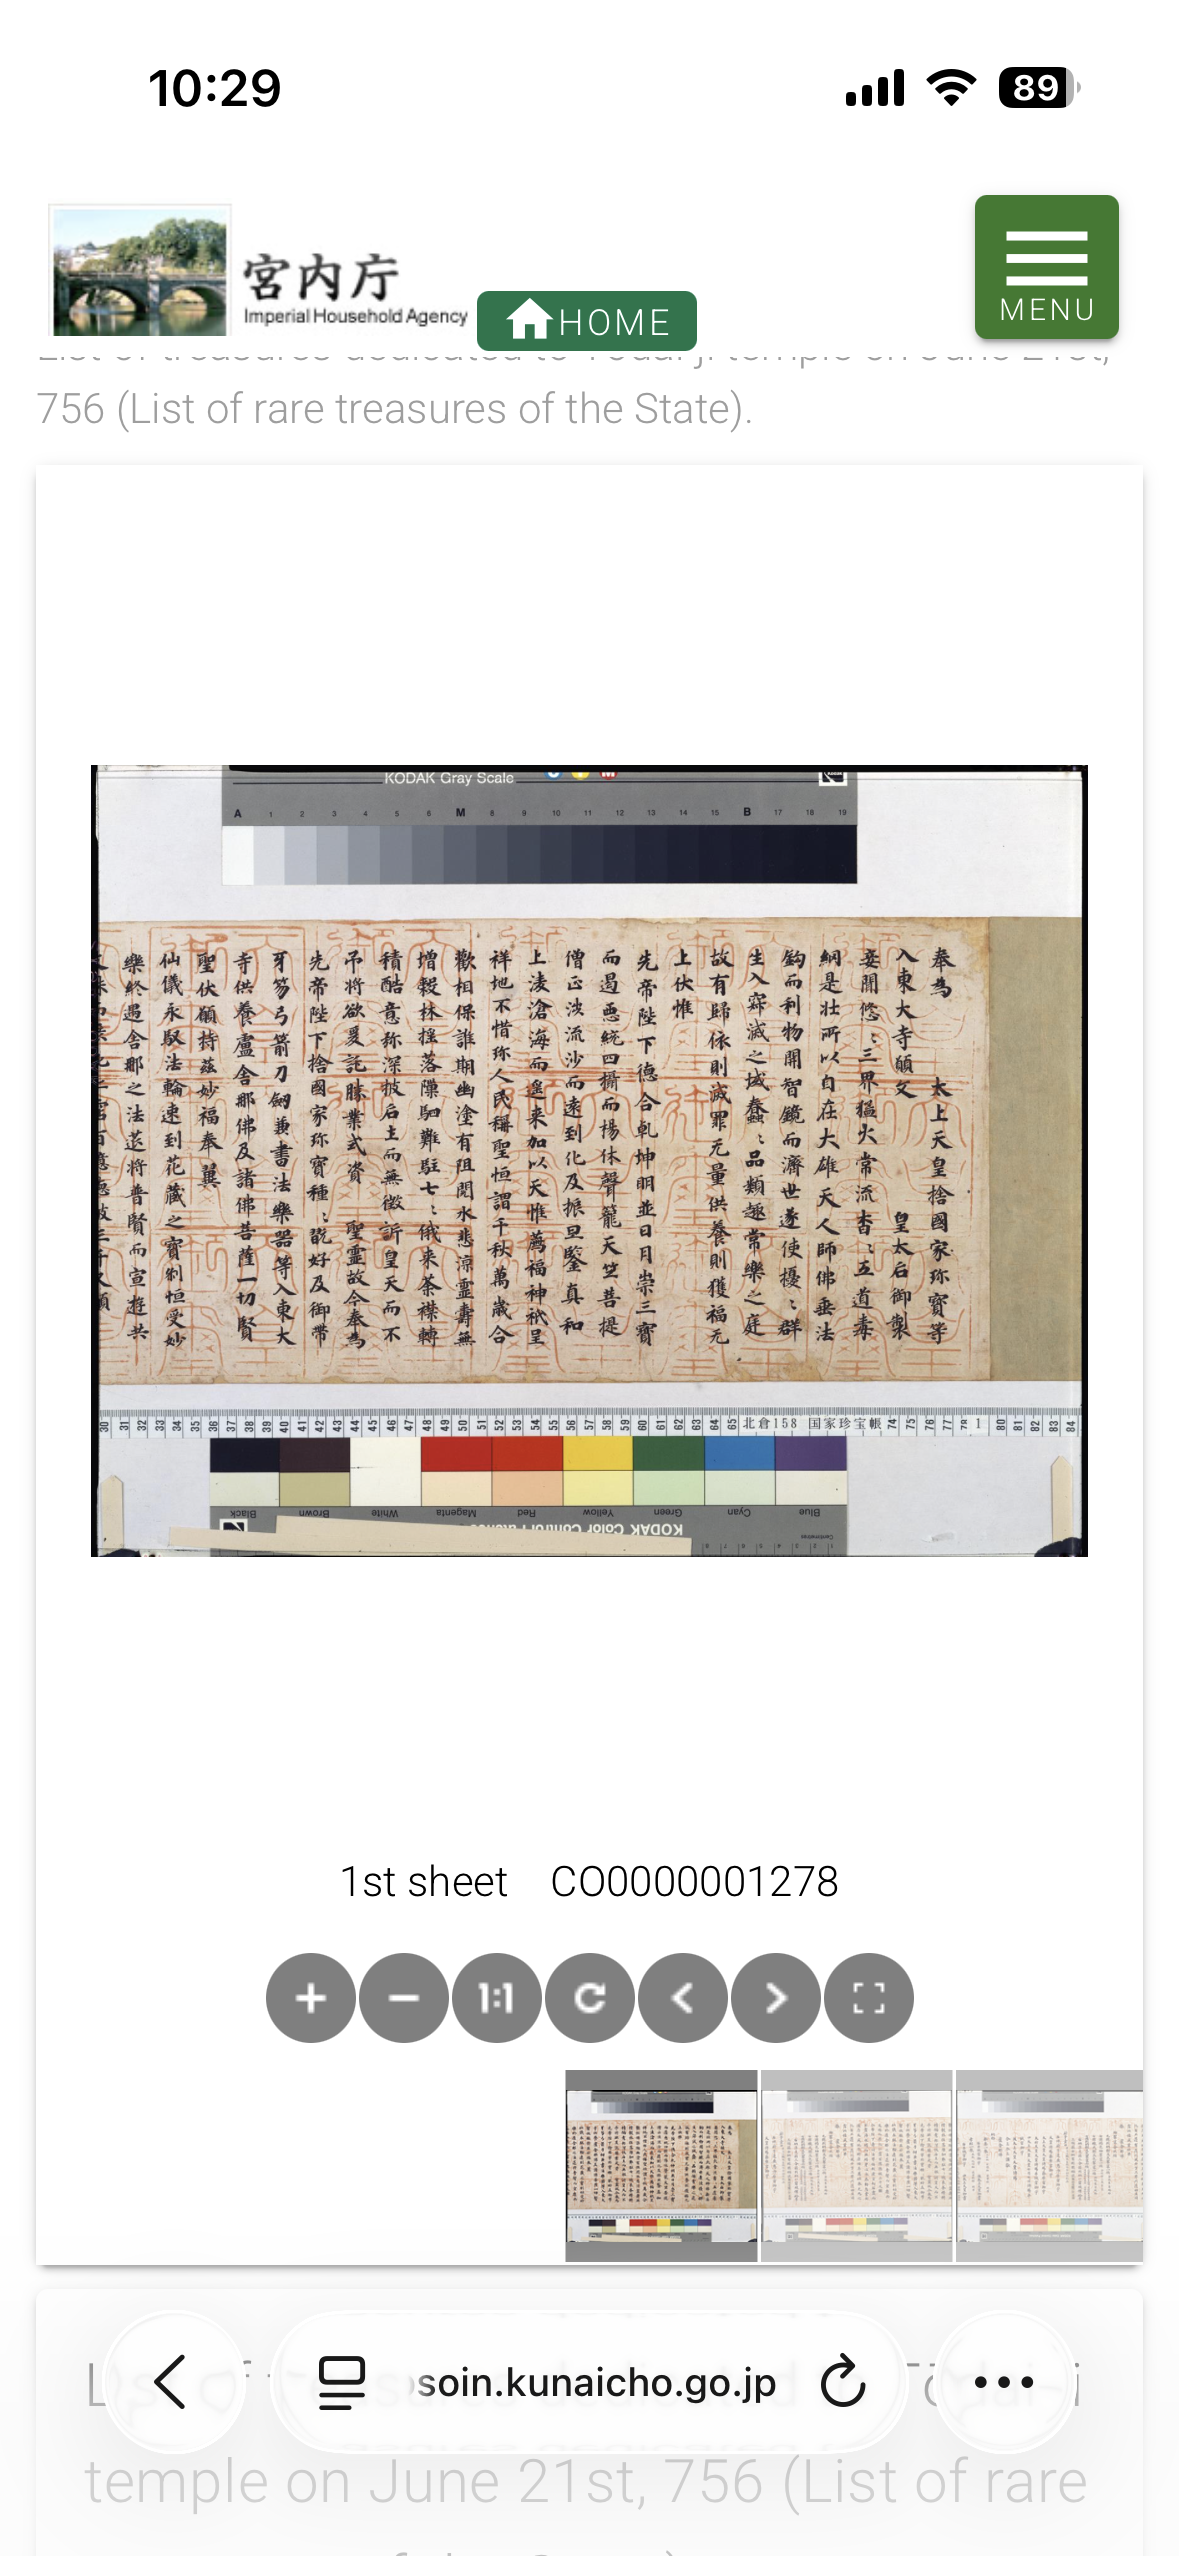 10:29
89
宮内庁
Imperial Household Agency
HOME
MENU
List of treasures dedicated to Todai-ji temple on June 21st,
756 (List of rare treasures of the State).
KODAK Gray Scale
A 1 2 3 4 5 6 M 8 9 10 11 12 13 14 15 B 17 18 19
奉為 太上天皇捨國家珎寶等
入東大寺願文 皇太后御製
妾聞悠〻三界猛火常流杳〻五道毒
網是壯所以自在大雄天人師佛垂法
鈎而利物開智鏡而濟世遂使擾〻群
生入寂滅之域蠢〻品類趣常樂之庭
故有歸依則滅罪无量供養則獲福无
上伏惟
先帝陛下德合乾坤明並日月崇三寶
而遏惡統四攝而揚休聲籠天竺菩提
僧正涉流沙而遠到化及振旦鑒真和
上凌滄海而遙来加以天惟薦福神祇呈
祥地不惜珎人民稱聖恒謂千秋萬歳合
歡相保誰期幽塗有阻閱水悲涼靈壽無
增穀林搖落隟駟難駐七〻俄来荼襟轉
積酷意弥深披后土而無徵訴皇天而不
吊將欲爰託勝業式資 聖靈故今奉為
先帝陛下捨國家珎寶種〻翫好及御帶
牙笏弓箭刀劔兼書法樂器等入東大
寺供養盧舍那佛及諸佛菩薩一切賢
聖伏願持茲妙福奉翼
仙儀永馭法輪速到花藏之寶刹恒受妙
樂終遇舍那之法莚將普賢而宣遊共
30 31 32 33 34 35 36 37 38 39 40 41 42 43 44 45 46 47 48 49 50 51 52 53 54 55 56 57 58 59 60 61 62 63 64 65 北倉158 国家珍宝帳 74 75 76 77 78 1 80 81 82 83 84
Black Brown White Magenta Red Yellow Green Cyan Blue
KODAK Color Control
1st sheet CO0000001278
1:1
soin.kunaicho.go.jp
temple on June 21st, 756 (List of rare